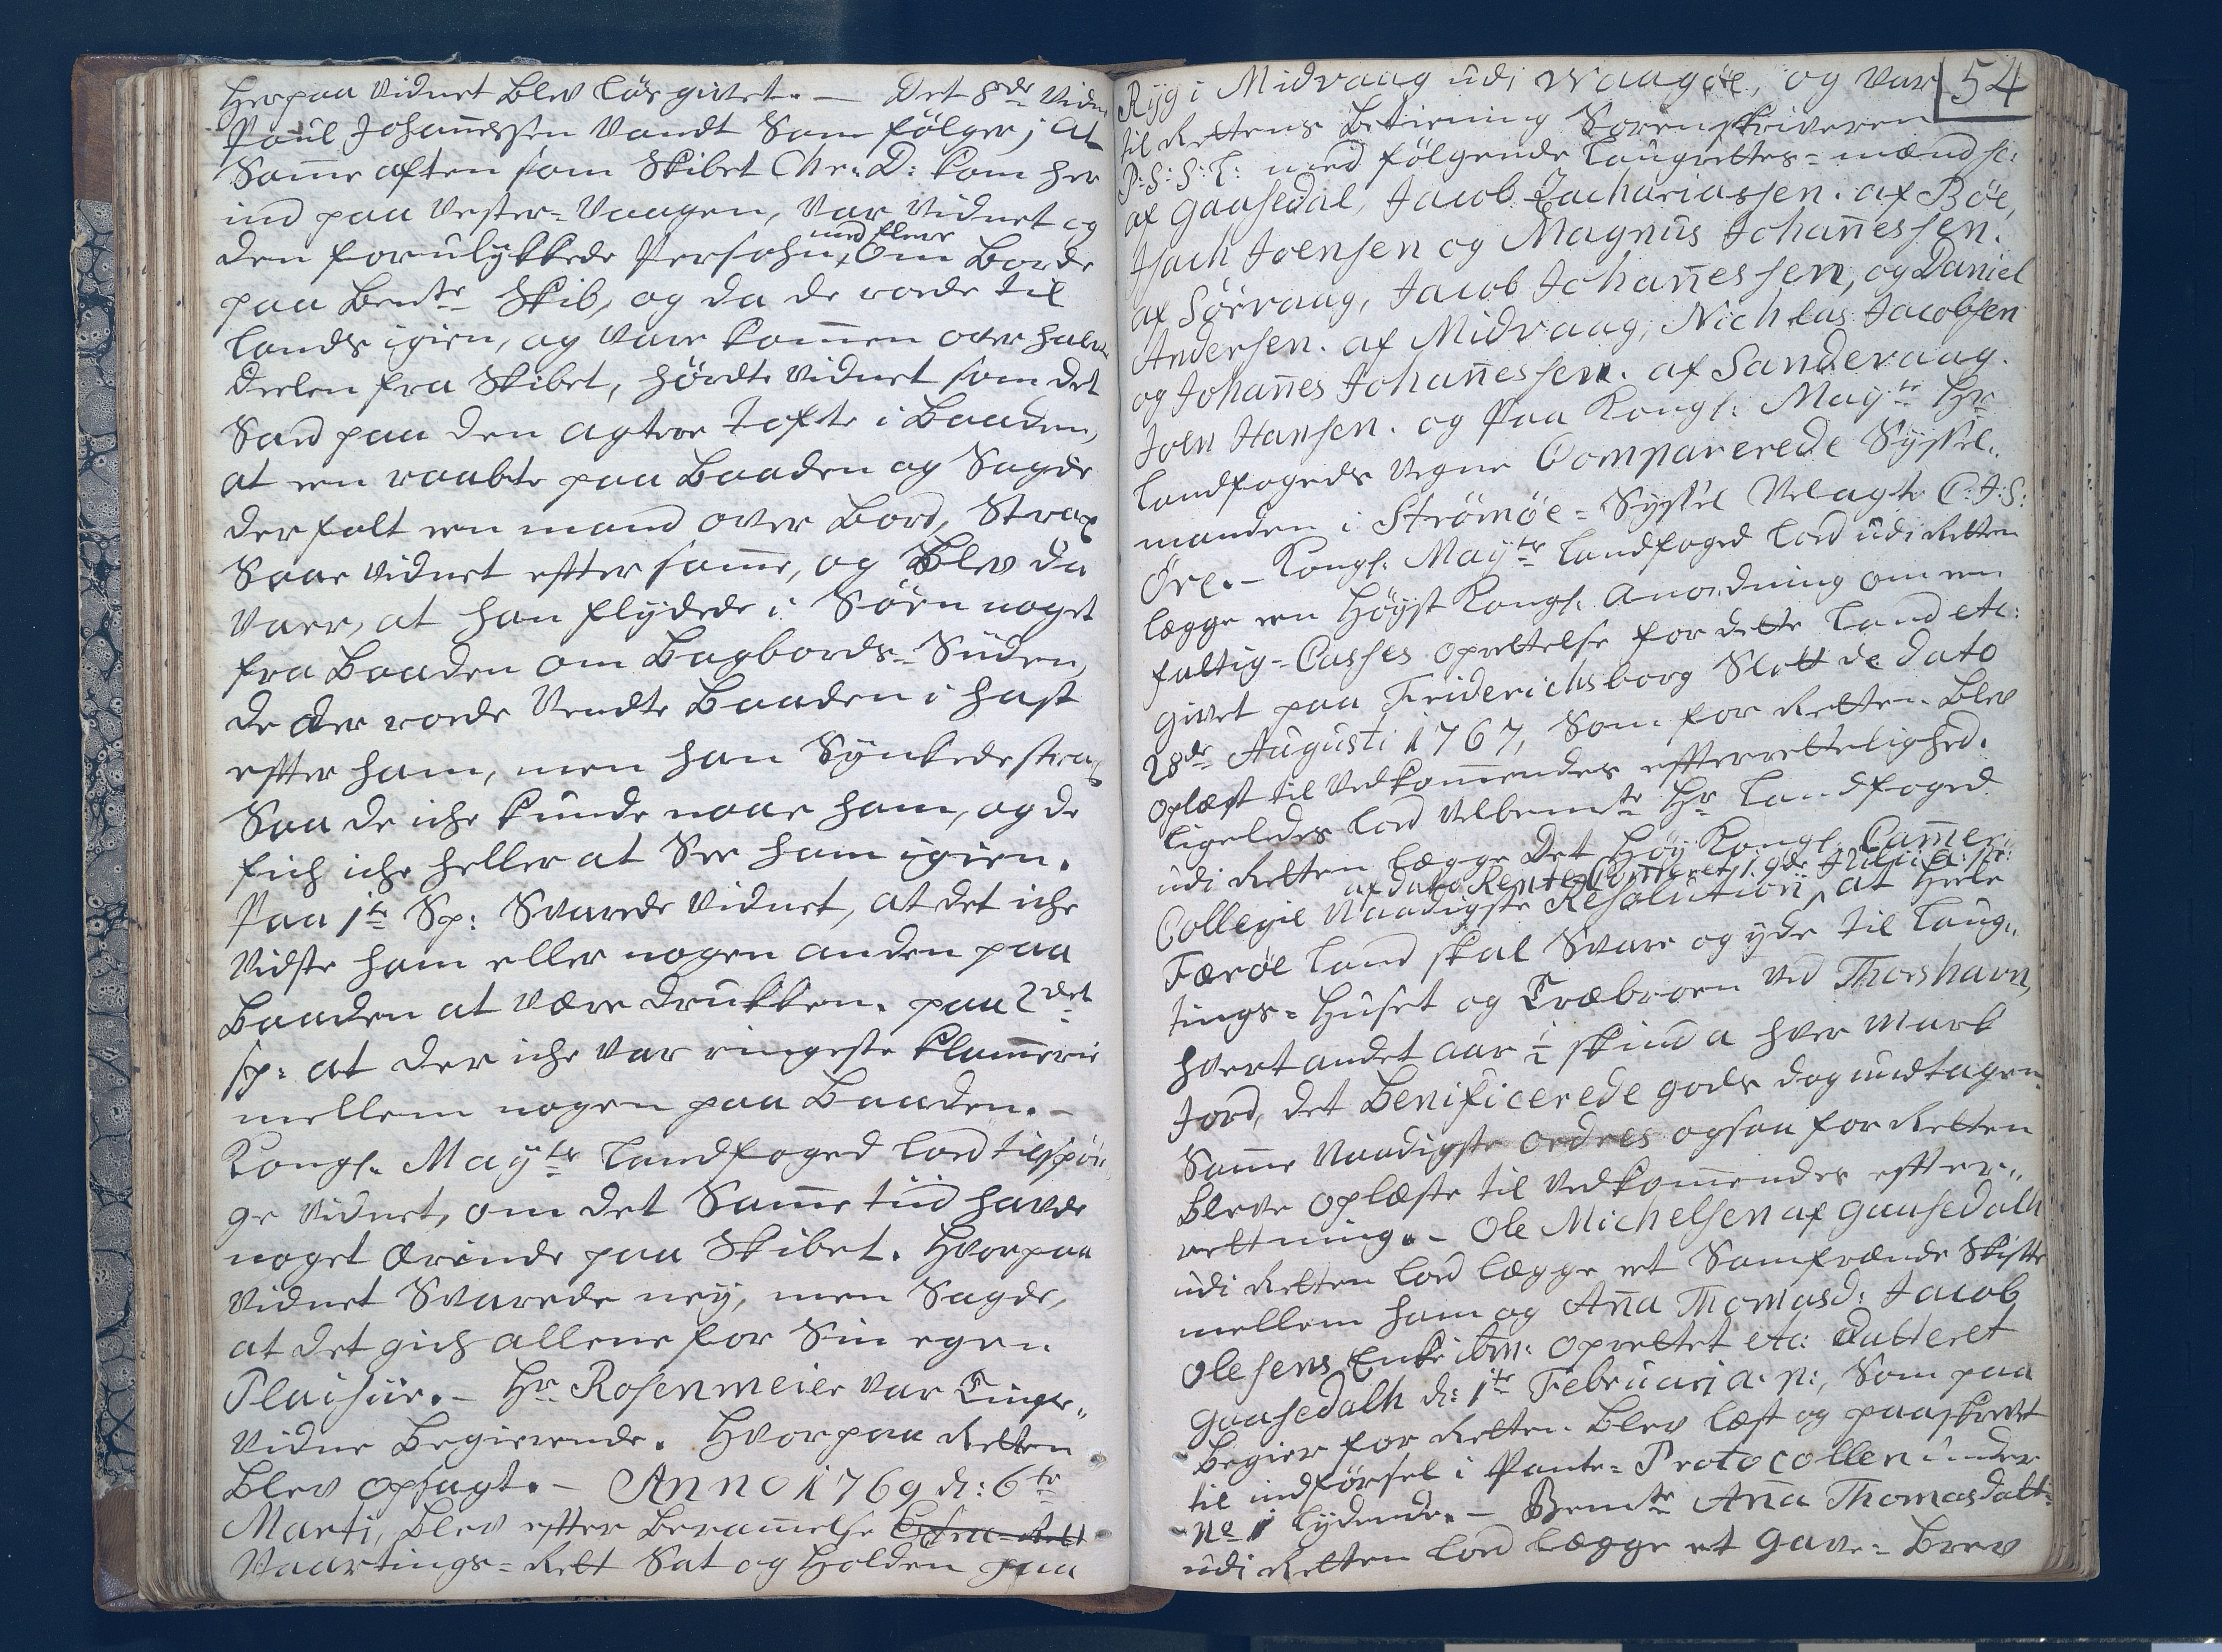 Herpaa Vidnet blev løs givet. — Det 8de Vidne
Poul Johañessen Vandt Som følger; at
Sam̃e aften som Skibet Chr: D: kom her
ind paa Vester-Vaagen, Var Vidnet og
den forulykkede Persohn, med flere Om Borde
paa Bemte Skib, og da de roede til
Lands igien, og Vare kom̃en over halve
Deelen fra Skibet, hørdte Vidnet som det
Sad paa den agtere Tofte i Baaden,
at een raabte paa Baaden og Sagde
der falt een mand over Bord, Strax
Saae Vidnet effter sam̃e, og Blev da
Vaer, at han flydede i Søen noget
fra Baaden om Bagbords-Siiden,
de der roede Vendte Baaden i hast
effter ham, men han Synkede strax
Saa de iche kunde naae ham, og de
fich iche heller at See ham igien.
Paa 1te Sp: Svarede Vidnet, at det iche
Vidste ham eller nogen anden paa
Baaden at være drukken. paa 2det
sp: at der iche var ringeste klam̃erie
mellem nogen paa Baaden. —
Kongl. Mayts Landfoged lod tilspør-
ge Vidnet, om det Sam̃e tiid havde
noget Ærinde paa Skibet. Hvorpaa
Vidnet Svarede ney, men Sagde,
at det gich allene for Sin egen
Plaisiir. — Hr Rosenmeier var Tings-
Vidne Begierende. Hvorpaa Retten
Blev opsagt. — Anno 1769 d: 6te
Marti, blev effter Beram̃else Extra-Rett
Vaartings-Rett Sat og Holden paa
54
Ryg i Midvaag udi Waagøe, og var
til Rettens Betiening Sorenskriveren
P: S: S: L: med følgende Laugrettes-mænd sc:
af Gaasedal, Jacob Zachariassen. af Bøe,
Isach Joensen og Magnus Johañessen.
af Sørvaag, Jacob Johañessen, og Daniel
Andersen. af Midvaag, Nichlas Jacobsen
og Johañes Johañessen. af Sandevaag.
Joen Hansen. og Paa Kongl: Mayts Hr
Landfogeds Vegne Comparerede Syssel-
manden i Strømøe-Syssel Velagte C: J: S:
Øre. — Kongl. Mayts Landfoged lod udi Retten
lægge een Høyst Kongl. Anordning om een
fattig-Casses oprettelse for dette Land etc:
givet paa Friderichsborg Slott de dato
28de Augusti 1767, Som for Retten Blev
oplæst til Vedkom̃endes effterrettelighed.
ligeledes lod Velbemte Hr Landfoged
udi Retten lægge Det Høy Kongl. Cam̃er-
af dato Rente Com̃eret 1. gde Julii a: pr:
Collegie Naadigste Resolution, at Heele
Færøe Land skal Svare og yde til Laug-
tings-Huset og Træbroen ved Thorshavn,
hvert andet aar ½ skind a hver Mark
Jord, det Benificerede gods dog undtagen.
Sam̃e Naadigste Ordres ogsaa for Retten
Bleve Oplæste til Vedkom̃endes effter-
rettning. — Ole Michelsen af Gaasedalh
udi Retten lod lægge et Samfrænde Skifte
mellem ham og Aña Thomasd: Jacob
Olesens Enke ibm: oprettet etc: Datteret
Gaasedalh d: 1te Februarj a: p:, Som paa
Begier for Retten Blev læst og paaskrevet
til indførsel i Pante-Protocollen under
No 1 lydende. — Bemte Aña Thomasdatt:
udi Retten lod lægge et Gave-Brev